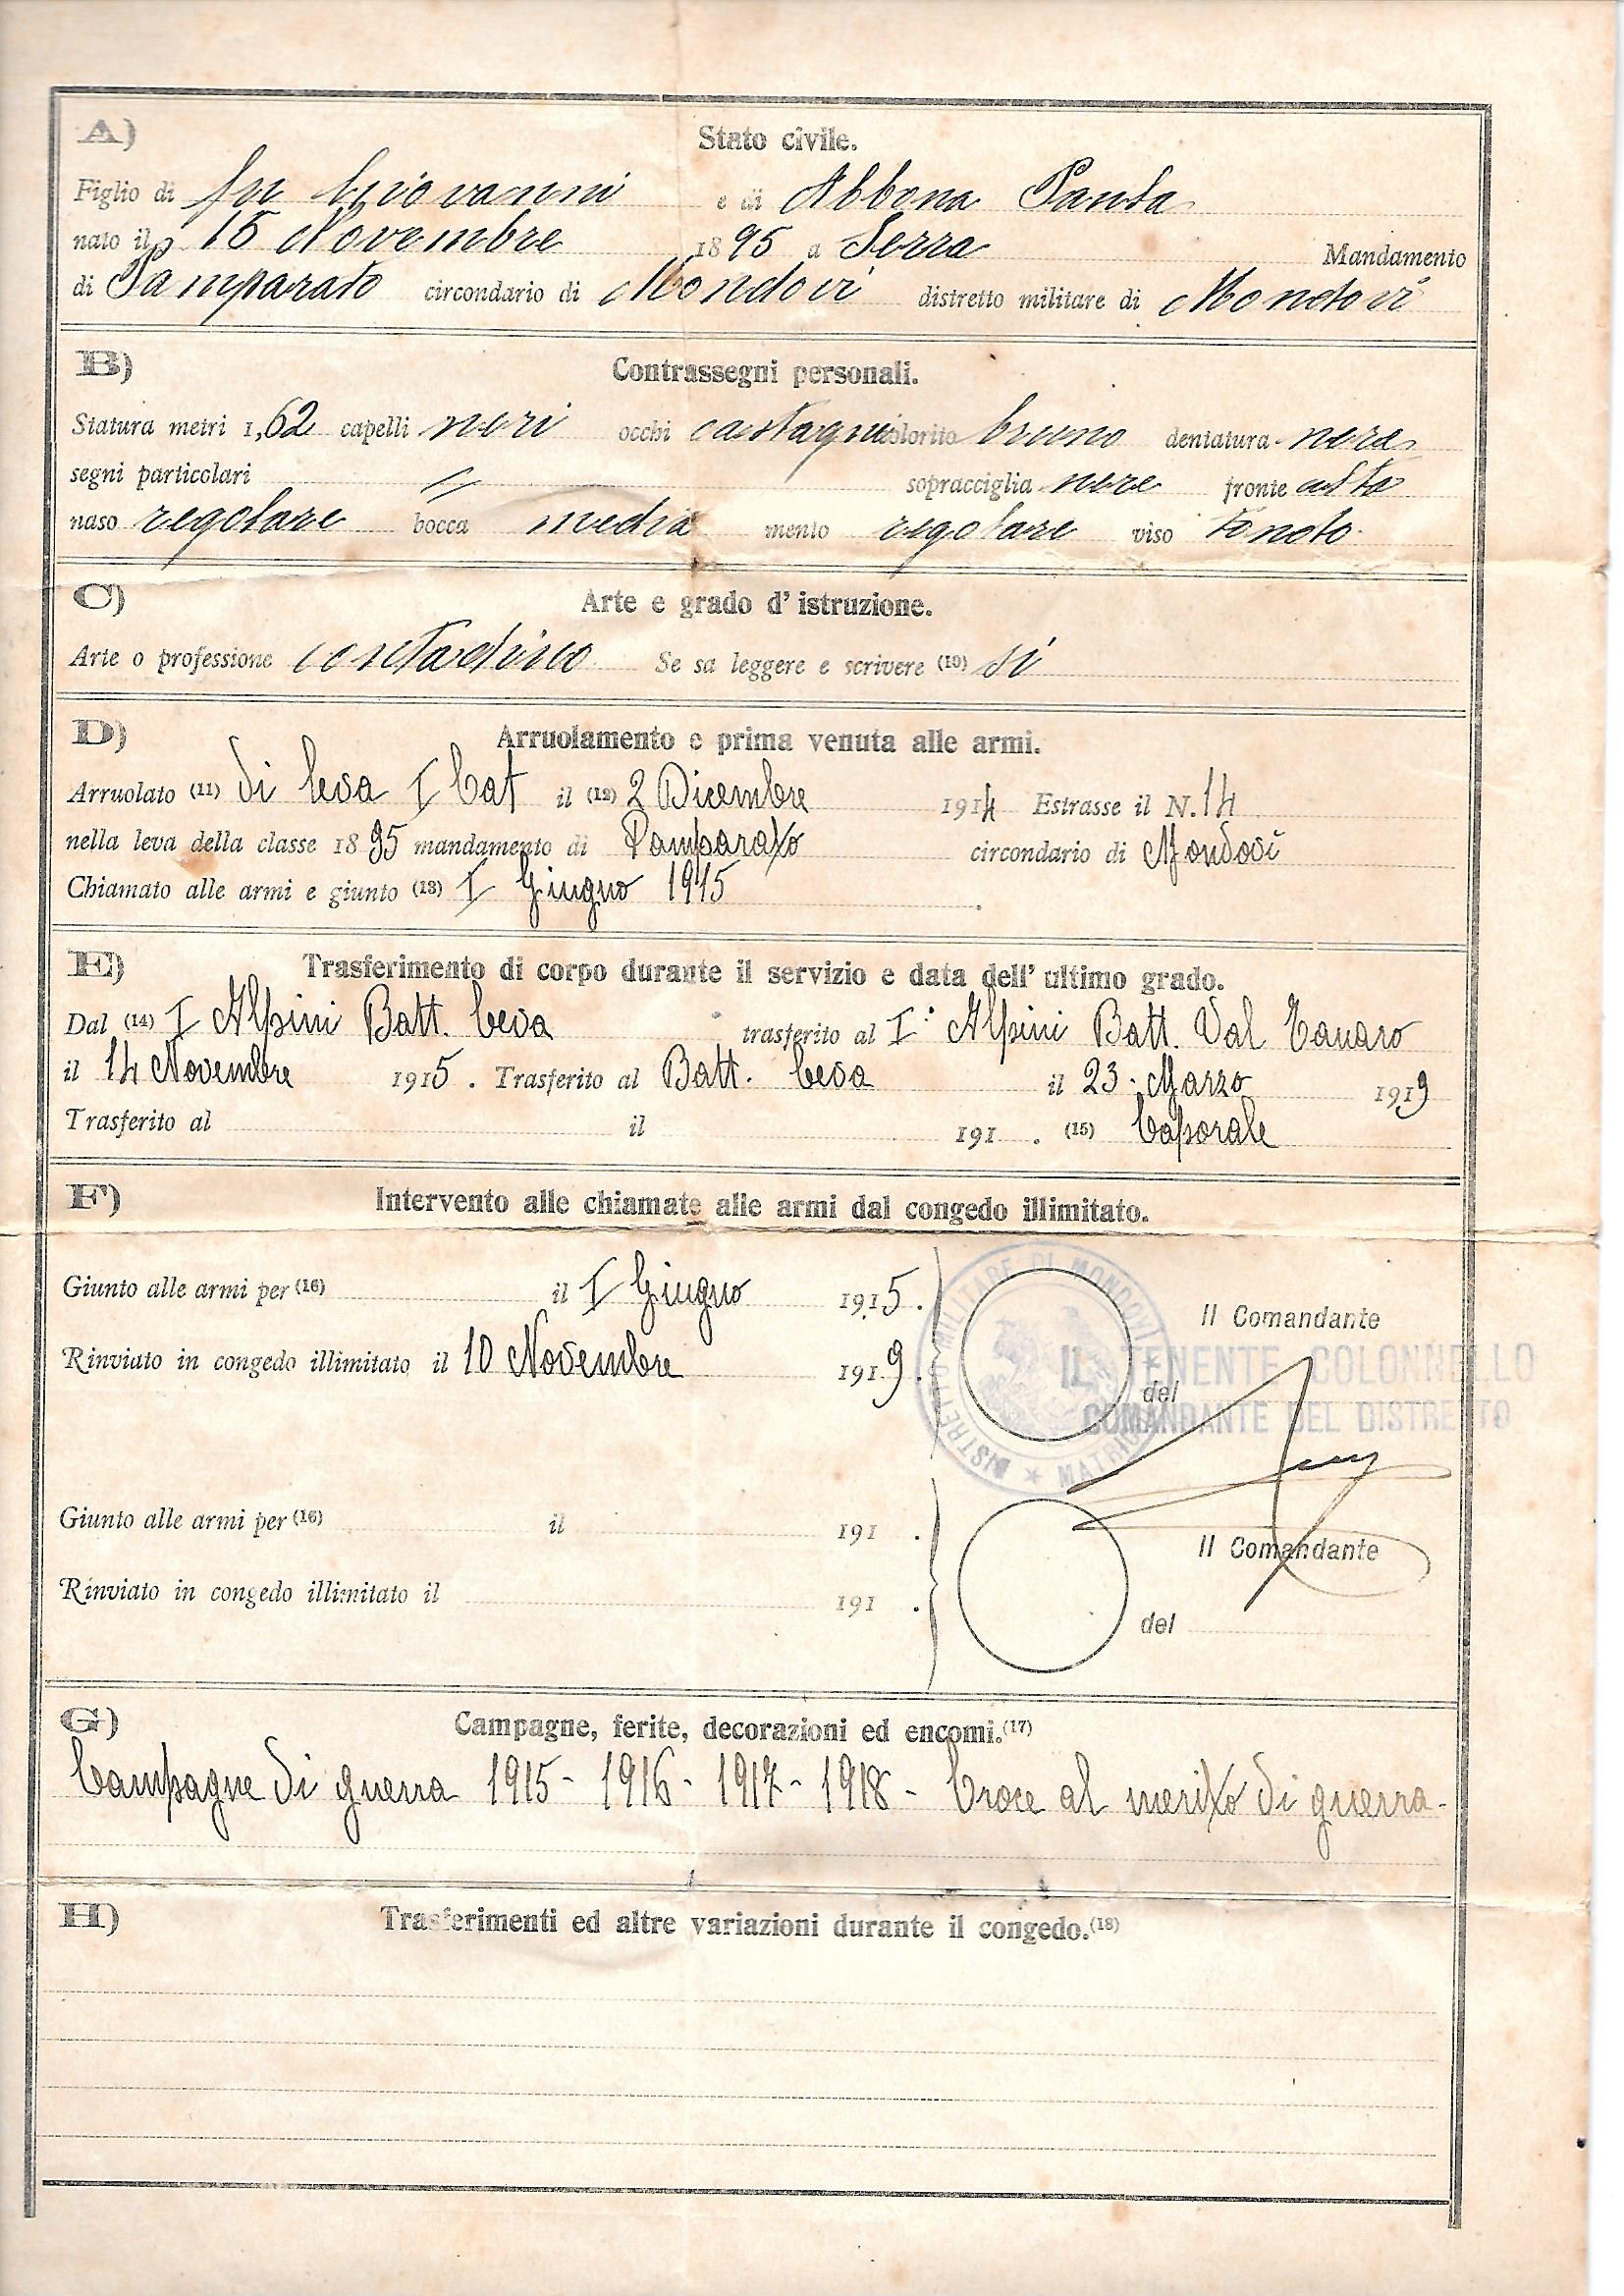 A) Stato civile.
Figlio di fu Giovanni e di Abbona Paula
nato il 15 Novembre 1895 a Serra Mandamento
di Pamparato circondario di Mondovì distretto militare di Mondovì
B) Contrassegni personali.
Statura metri 1,62 capelli neri occhi castagni colorito bruno dentatura nera
segni particolari // sopracciglia nere fronte alta
naso regolare bocca media mento regolare viso tondo.
C) Arte e grado d'istruzione.
Arte o professione contadino Se sa leggere e scrivere (10) sì
D) Arruolamento e prima venuta alle armi.
Arruolato (11) di leva I Cat il (12) 2 Dicembre 1914 Estrasse il N. 14
nella leva della classe 1895 mandamento di Pamparato circondario di Mondovì
Chiamato alle armi e giunto (13) I Giugno 1915
E) Trasferimento di corpo durante il servizio e data dell'ultimo grado.
Dal (14) I Alpini Batt. Ceva trasferito al I° Alpini Batt. Val Tanaro
il 14 Novembre 1915. Trasferito al Batt. Ceva il 23 Marzo 1919
Trasferito al il 191 . (15) Caporale
F) Intervento alle chiamate alle armi dal congedo illimitato.
Giunto alle armi per (16) il I Giugno 1915. Il Comandante
Rinviato in congedo illimitato il 10 Novembre 1919. del
DISTRETTO MILITARE DI MONDOVÌ
IL TENENTE COLONNELLO
COMANDANTE DEL DISTRETTO
Giunto alle armi per (16) il 191 . Il Comandante
Rinviato in congedo illimitato il 191 . del
G) Campagne, ferite, decorazioni ed encomi. (17)
Campagne di guerra 1915 - 1916 - 1917 - 1918 - Croce al merito di guerra -
H) Trasferimenti ed altre variazioni durante il congedo. (18)